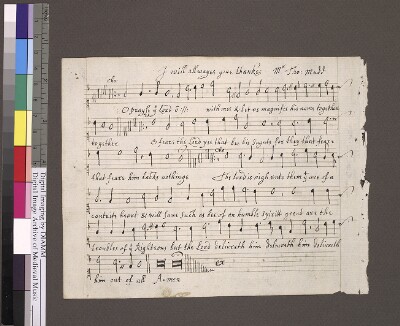 I will allwayes give thankes Mr Tho: Mudd
Cho
O prayse ye Lord with mee & let us magnifie his name together
together O feare the Lord yee that bee his Saynts for they that
that feare him lacke nothinge The Lord is nigh unto them yt are of a
contrite heart & will save such as bee of an humble spirit great are the
troubles of ye Righteous but the Lord delivereth him delivereth him delivereth
him out of all Amen
Digital Imaging by DIAMM
Digital Image Archive of Medieval Music